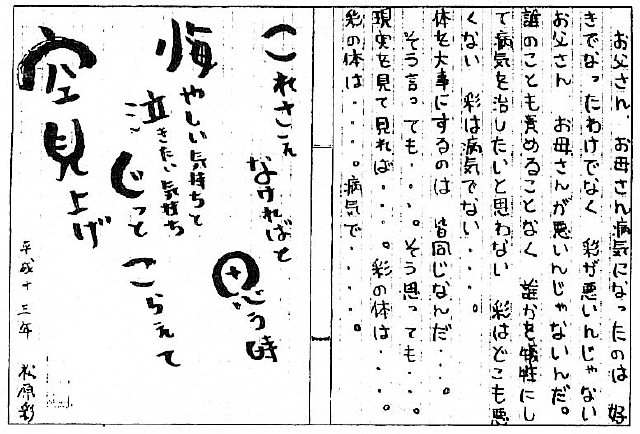 お父さん、お母さん病気になったのは 好
きでなったわけでなく 彩が悪いんじゃない
お父さん お母さんが悪いんじゃないんだ。
誰のことも責めることなく 誰かを犠牲にし
て病気を治したいと思わない 彩はどこも悪
くない 彩は病気でない・・・・。
体を大事にするのは 皆同じなんだ・・・。
そう言っても・・・。そう思っても・・・。
現実を見て見れば・・・・。彩の体は・・・・。
彩の体は・・・・。病気で・・・・。
これさえ
なければと
思う時
悔やしい気持ちと
泣きたい気持ち
じっと こらえて
空見上げ
平成十三年 松原彩